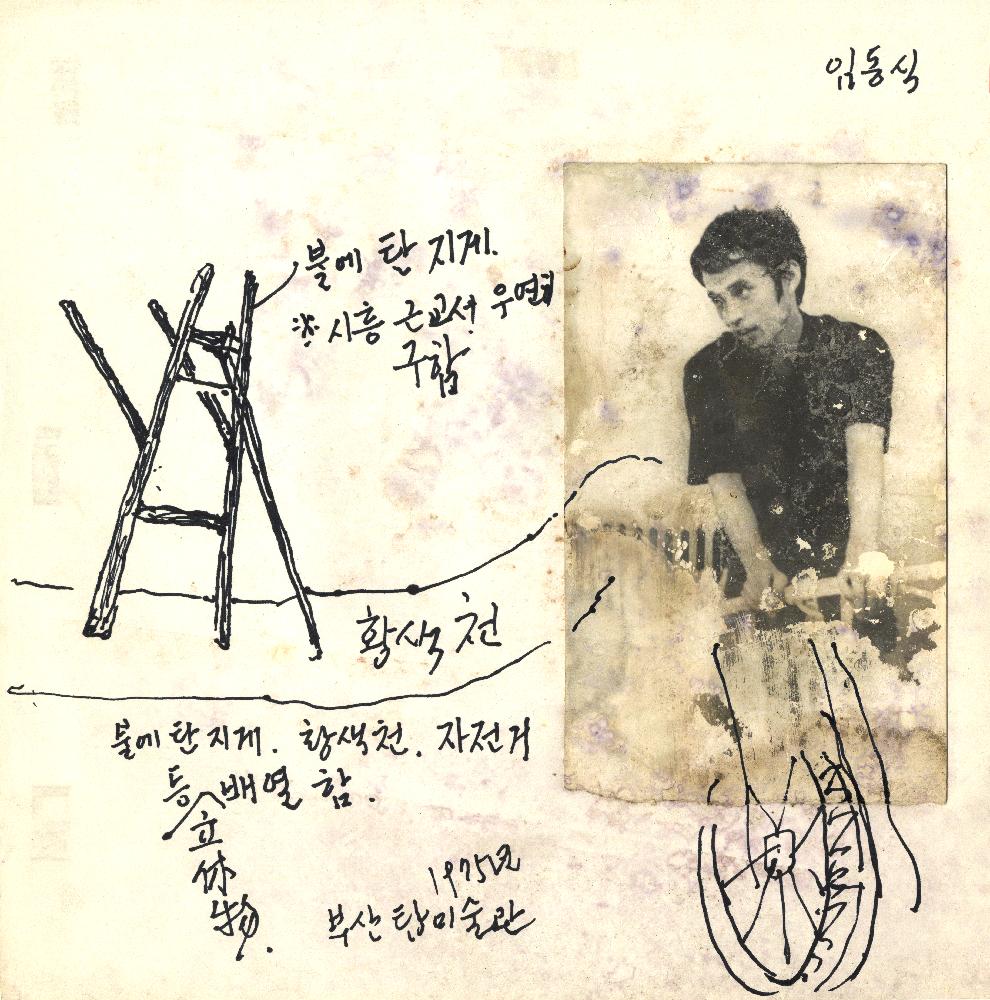 임동식
불에 탄 지게.
※ 시흥 근교서 우연히
구함
황색 천
불에 탄 지게. 황색천. 자전거
등 배열 함.
立
体
物.
1975년
부산 탑미술관